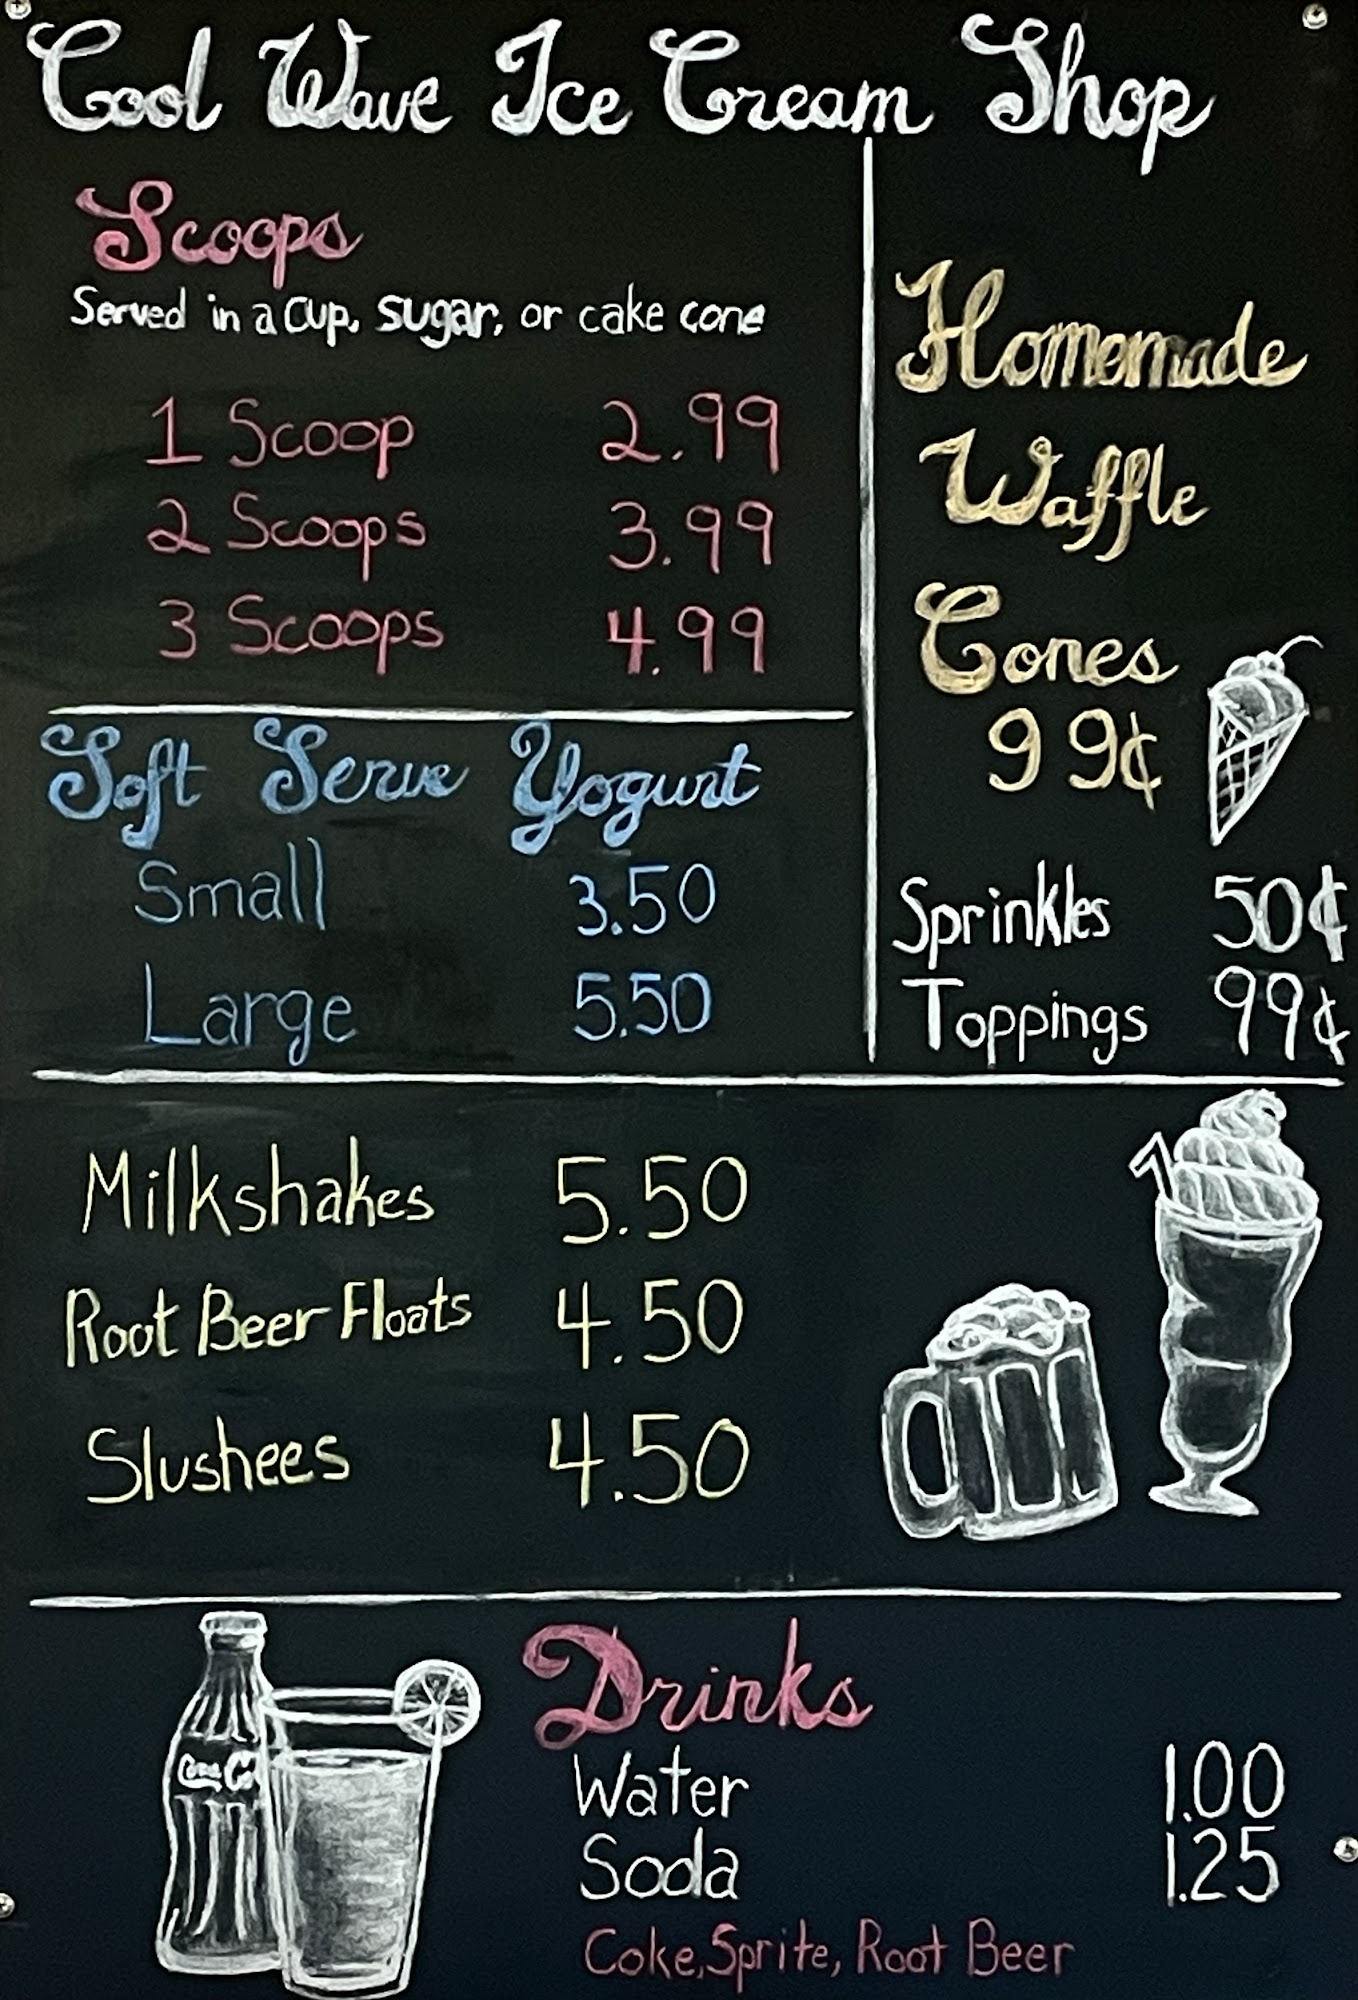 Cool Wave Ice Cream Shop
Scoops
Served in a cup, sugar, or cake cone
1 Scoop 2.99
2 Scoops 3.99
3 Scoops 4.99
Soft Serve Yogurt
Small 3.50
Large 5.50
Homemade
Waffle
Cones
99¢
Sprinkles 50¢
Toppings 99¢
Milkshakes 5.50
Root Beer Floats 4.50
Slushees 4.50
Drinks
Water 1.00
Soda 1.25
Coke, Sprite, Root Beer